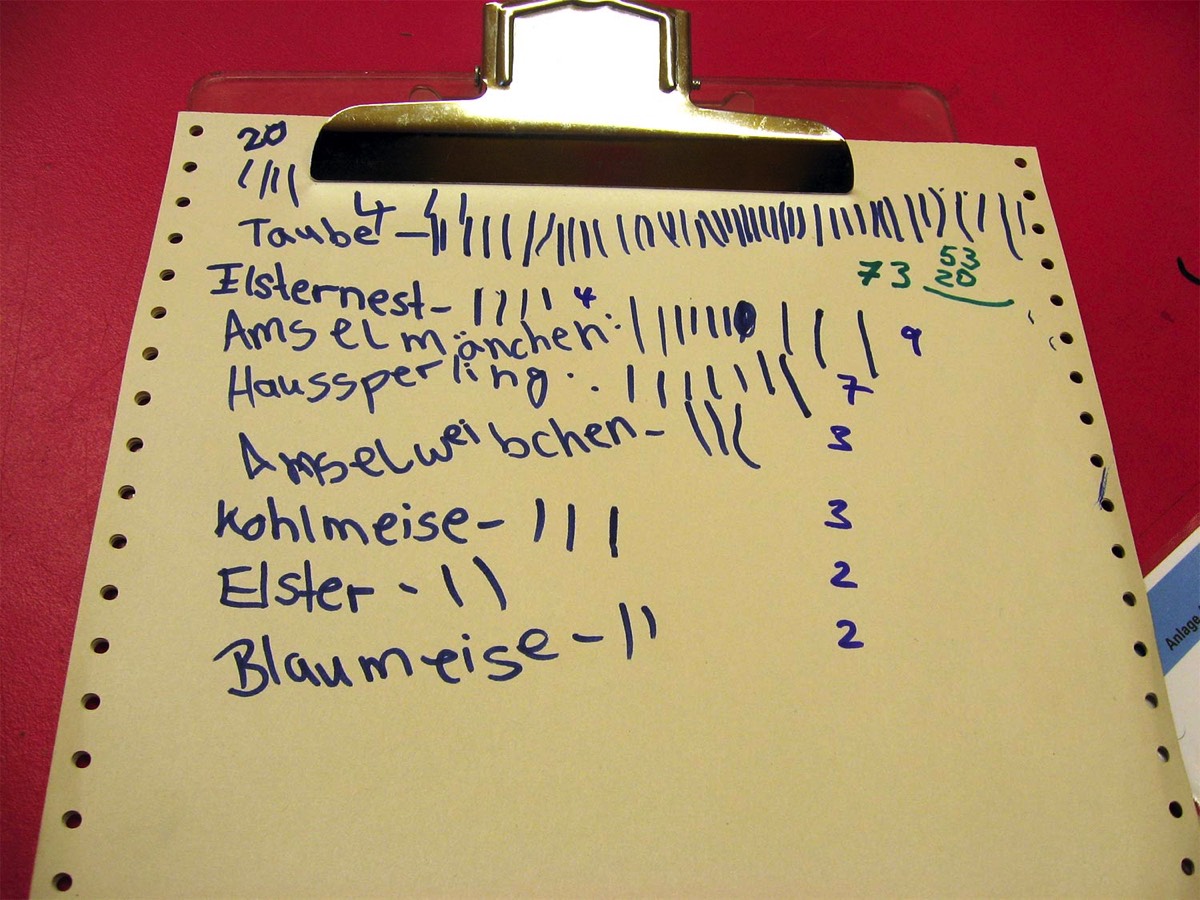 20
||||
4
Taube – |||||||||||||||||||||||||||||||||||||||||||||||||||||
73 53
20
Elsternest – |||| 4
Amselmänchen: ||||||||||| 9
Haussperling .. ||||||| 7
Amselweibchen – ||| 3
Kohlmeise – ||| 3
Elster - || 2
Blaumeise – || 2
Anlage